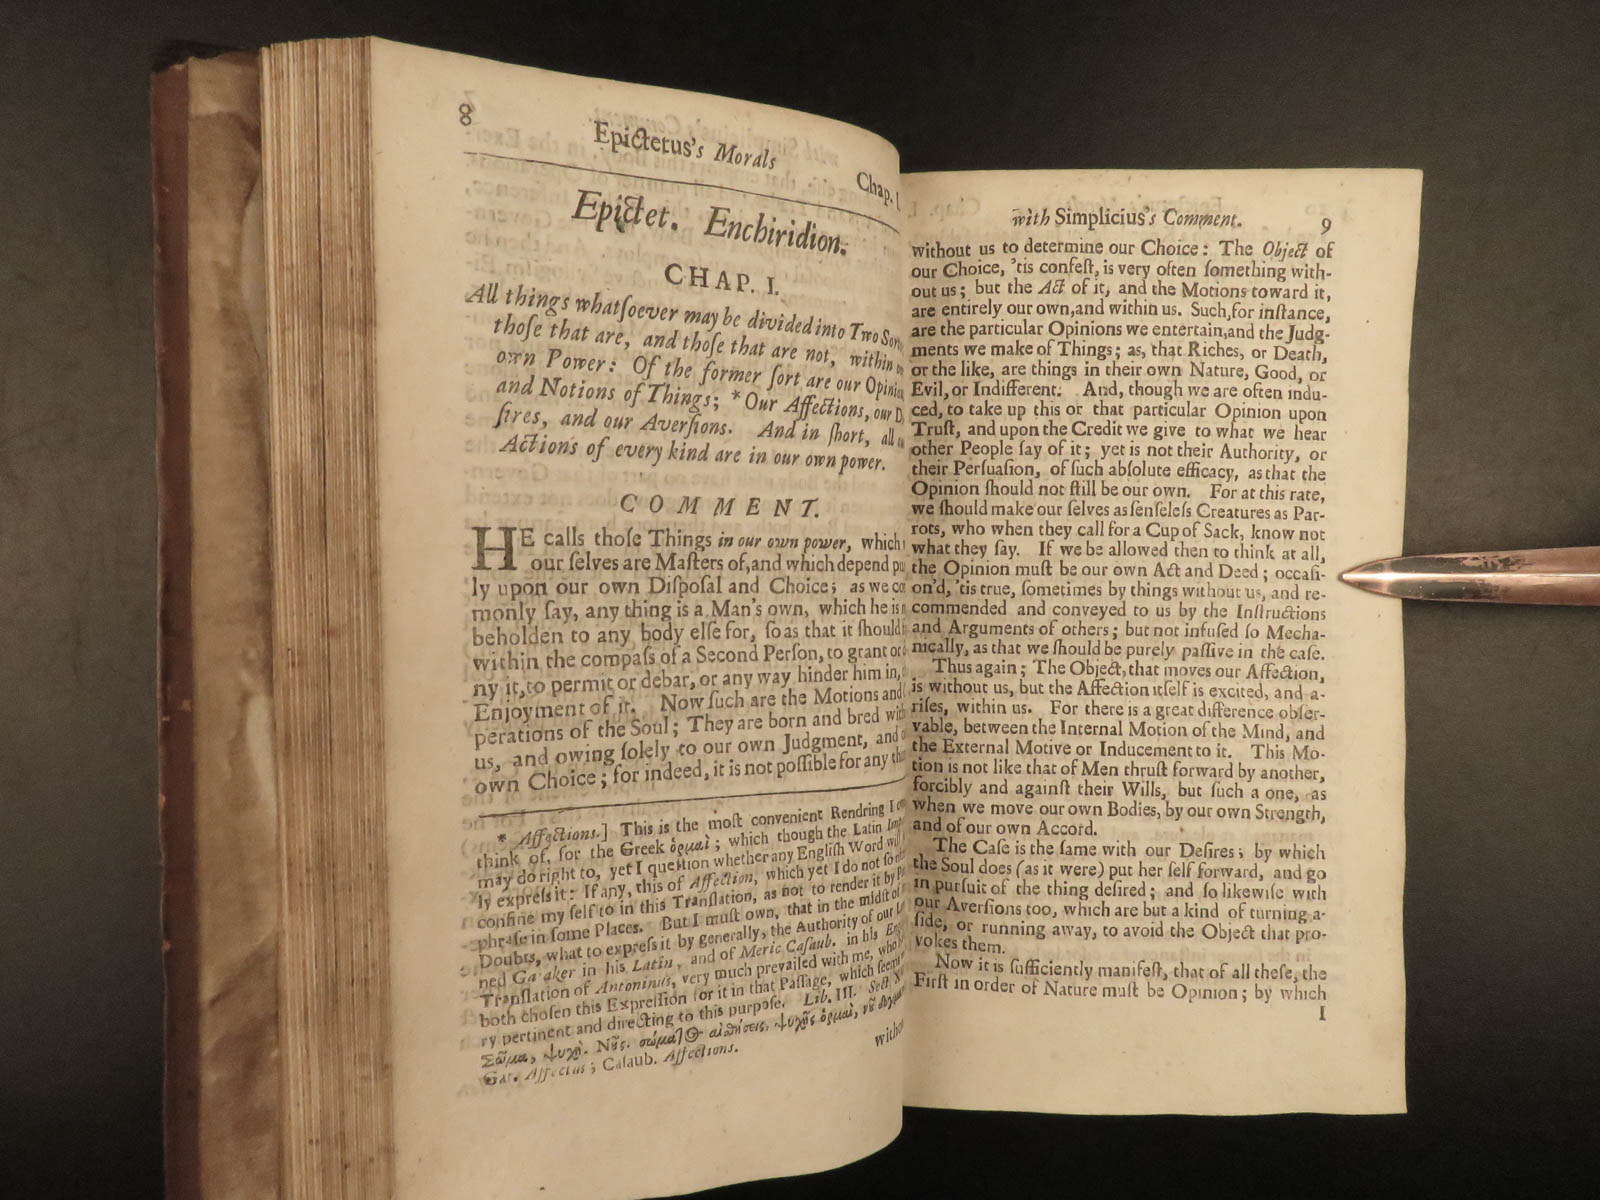 8
Epictetus's Morals
Chap. I.
Epictet. Enchiridion.
CHAP. I.
All things whatſoever may be divided into Two Sor
thoſe that are, and thoſe that are not, within
own Power: Of the former ſort are our Opinion
and Notions of Things; * Our Affections, our D
ſires, and our Averſions. And in ſhort, all
Actions of every kind are in our own power.
COMMENT.
HE calls thoſe Things in our own power, which
our ſelves are Maſters of, and which depend pu
ly upon our own Diſpoſal and Choice; as we co
monly ſay, any thing is a Man's own, which he is n
beholden to any body elſe for, ſo as that it ſhould f
within the compaſs of a Second Perſon, to grant or
ny it, to permit or debar, or any way hinder him in,
Enjoyment of it. Now ſuch are the Motions and
perations of the Soul; They are born and bred with
us, and owing ſolely to our own Judgment, and
own Choice; for indeed, it is not poſſible for any th
* Affections.] This is the moſt convenient Rendring I
think of, for the Greek ὁρμαὶ; which though the Latin Imp
may do right to, yet I queſtion whether any Engliſh Word will
ly expreſs it: If any, this of Affection, which yet I do not ſo
confine my ſelf to in this Tranſlation, as not to render it by
phraſe in ſome Places. But I muſt own, that in the midſt of
Doubts, what to expreſs it by generally, the Authority of our
ned Ga aker in his Latin, and of Meric Caſaub. in his
Tranſlation of Antoninus, very much prevailed with me, who
both choſen this Expreſſion for it in that Paſſage, which ſeems
ry pertinent and directing to this purpoſe. Lib. III. Sect.
Σῶμα, ψυχὴ. Νῦς. σώμα]Θ αἰσθήσεις, ψυχῆς ὁρμαὶ, νῦ
Gat. Affectus; Caſaub. Affections.
withou
with Simplicius's Comment.
9
without us to determine our Choice: The Object of
our Choice, 'tis confeſt, is very often ſomething with-
out us; but the Act of it, and the Motions toward it,
are entirely our own, and within us. Such, for inſtance,
are the particular Opinions we entertain, and the Judg-
ments we make of Things; as, that Riches, or Death,
or the like, are things in their own Nature, Good, or
Evil, or Indifferent. And, though we are often indu-
ced, to take up this or that particular Opinion upon
Truſt, and upon the Credit we give to what we hear
other People ſay of it; yet is not their Authority, or
their Perſuaſion, of ſuch abſolute efficacy, as that the
Opinion ſhould not ſtill be our own. For at this rate,
we ſhould make our ſelves as ſenſeleſs Creatures as Par-
rots, who when they call for a Cup of Sack, know not
what they ſay. If we be allowed then to think at all,
the Opinion muſt be our own Act and Deed; occaſi-
on'd, 'tis true, ſometimes by things without us, and re-
commended and conveyed to us by the Inſtructions
and Arguments of others; but not infuſed ſo Mecha-
nically, as that we ſhould be purely paſſive in the caſe.
Thus again; The Object, that moves our Affection,
is without us, but the Affection itſelf is excited, and a-
riſes, within us. For there is a great difference obſer-
vable, between the Internal Motion of the Mind, and
the External Motive or Inducement to it. This Mo-
tion is not like that of Men thruſt forward by another,
forcibly and againſt their Wills, but ſuch a one, as
when we move our own Bodies, by our own Strength,
and of our own Accord.
The Caſe is the ſame with our Deſires; by which
the Soul does (as it were) put her ſelf forward, and go
in purſuit of the thing deſired; and ſo likewiſe with
our Averſions too, which are but a kind of turning a-
ſide, or running away, to avoid the Object that pro-
vokes them.
Now it is ſufficiently manifeſt, that of all theſe, the
Firſt in order of Nature muſt be Opinion; by which
I